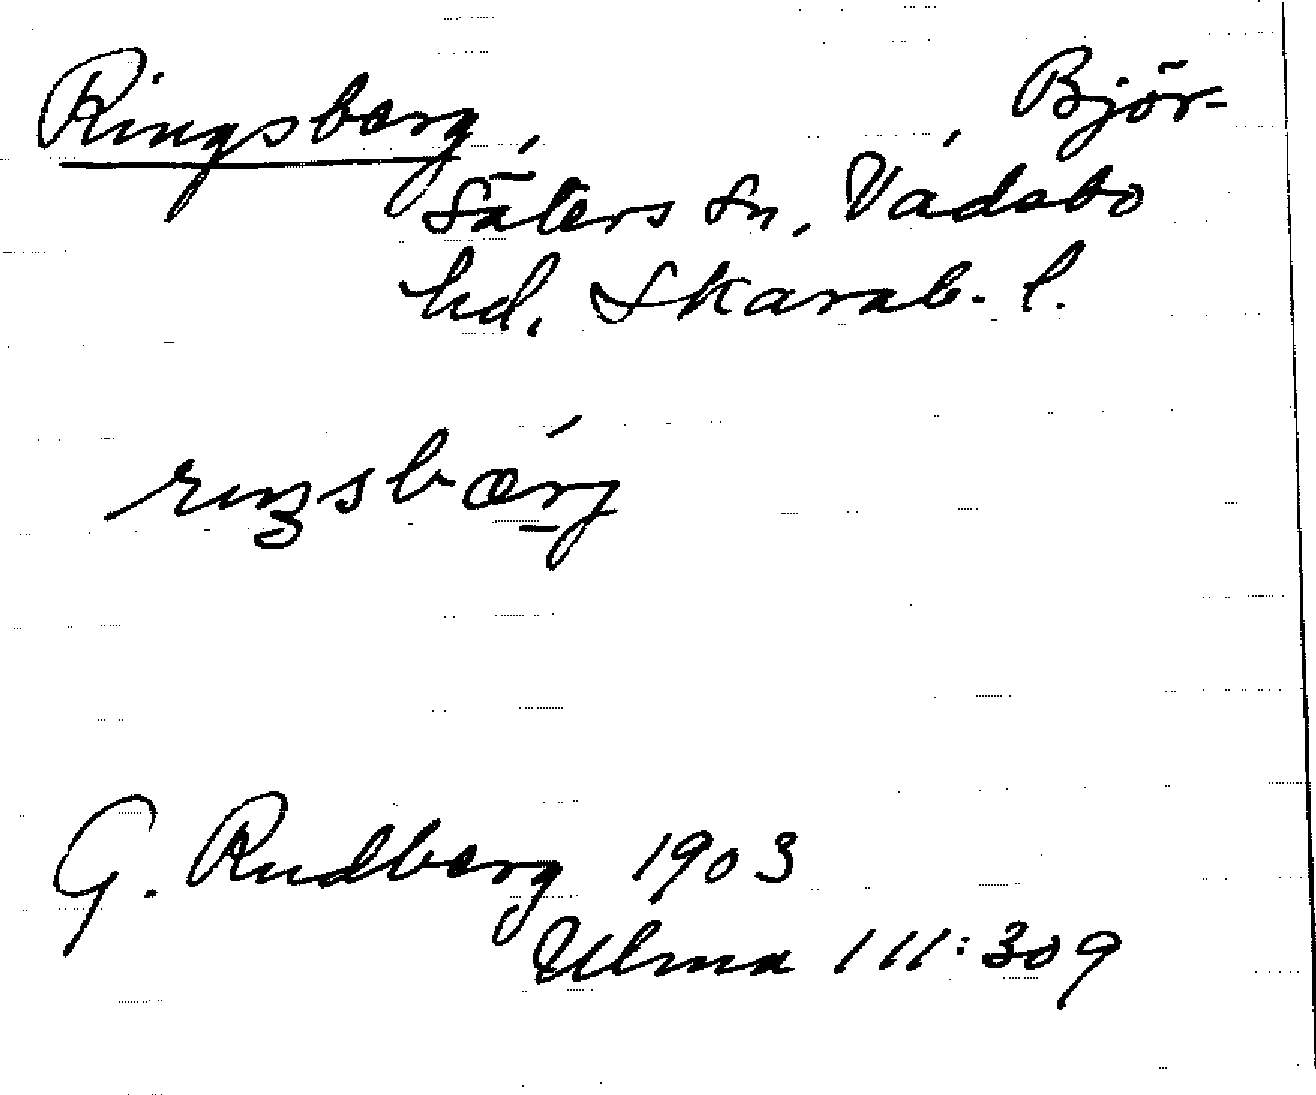 Ringsberg, , Björ-
säters sn, Vadsbo
hd, Skarab. l.
G. Rudberg 1903
Ulma 111:309